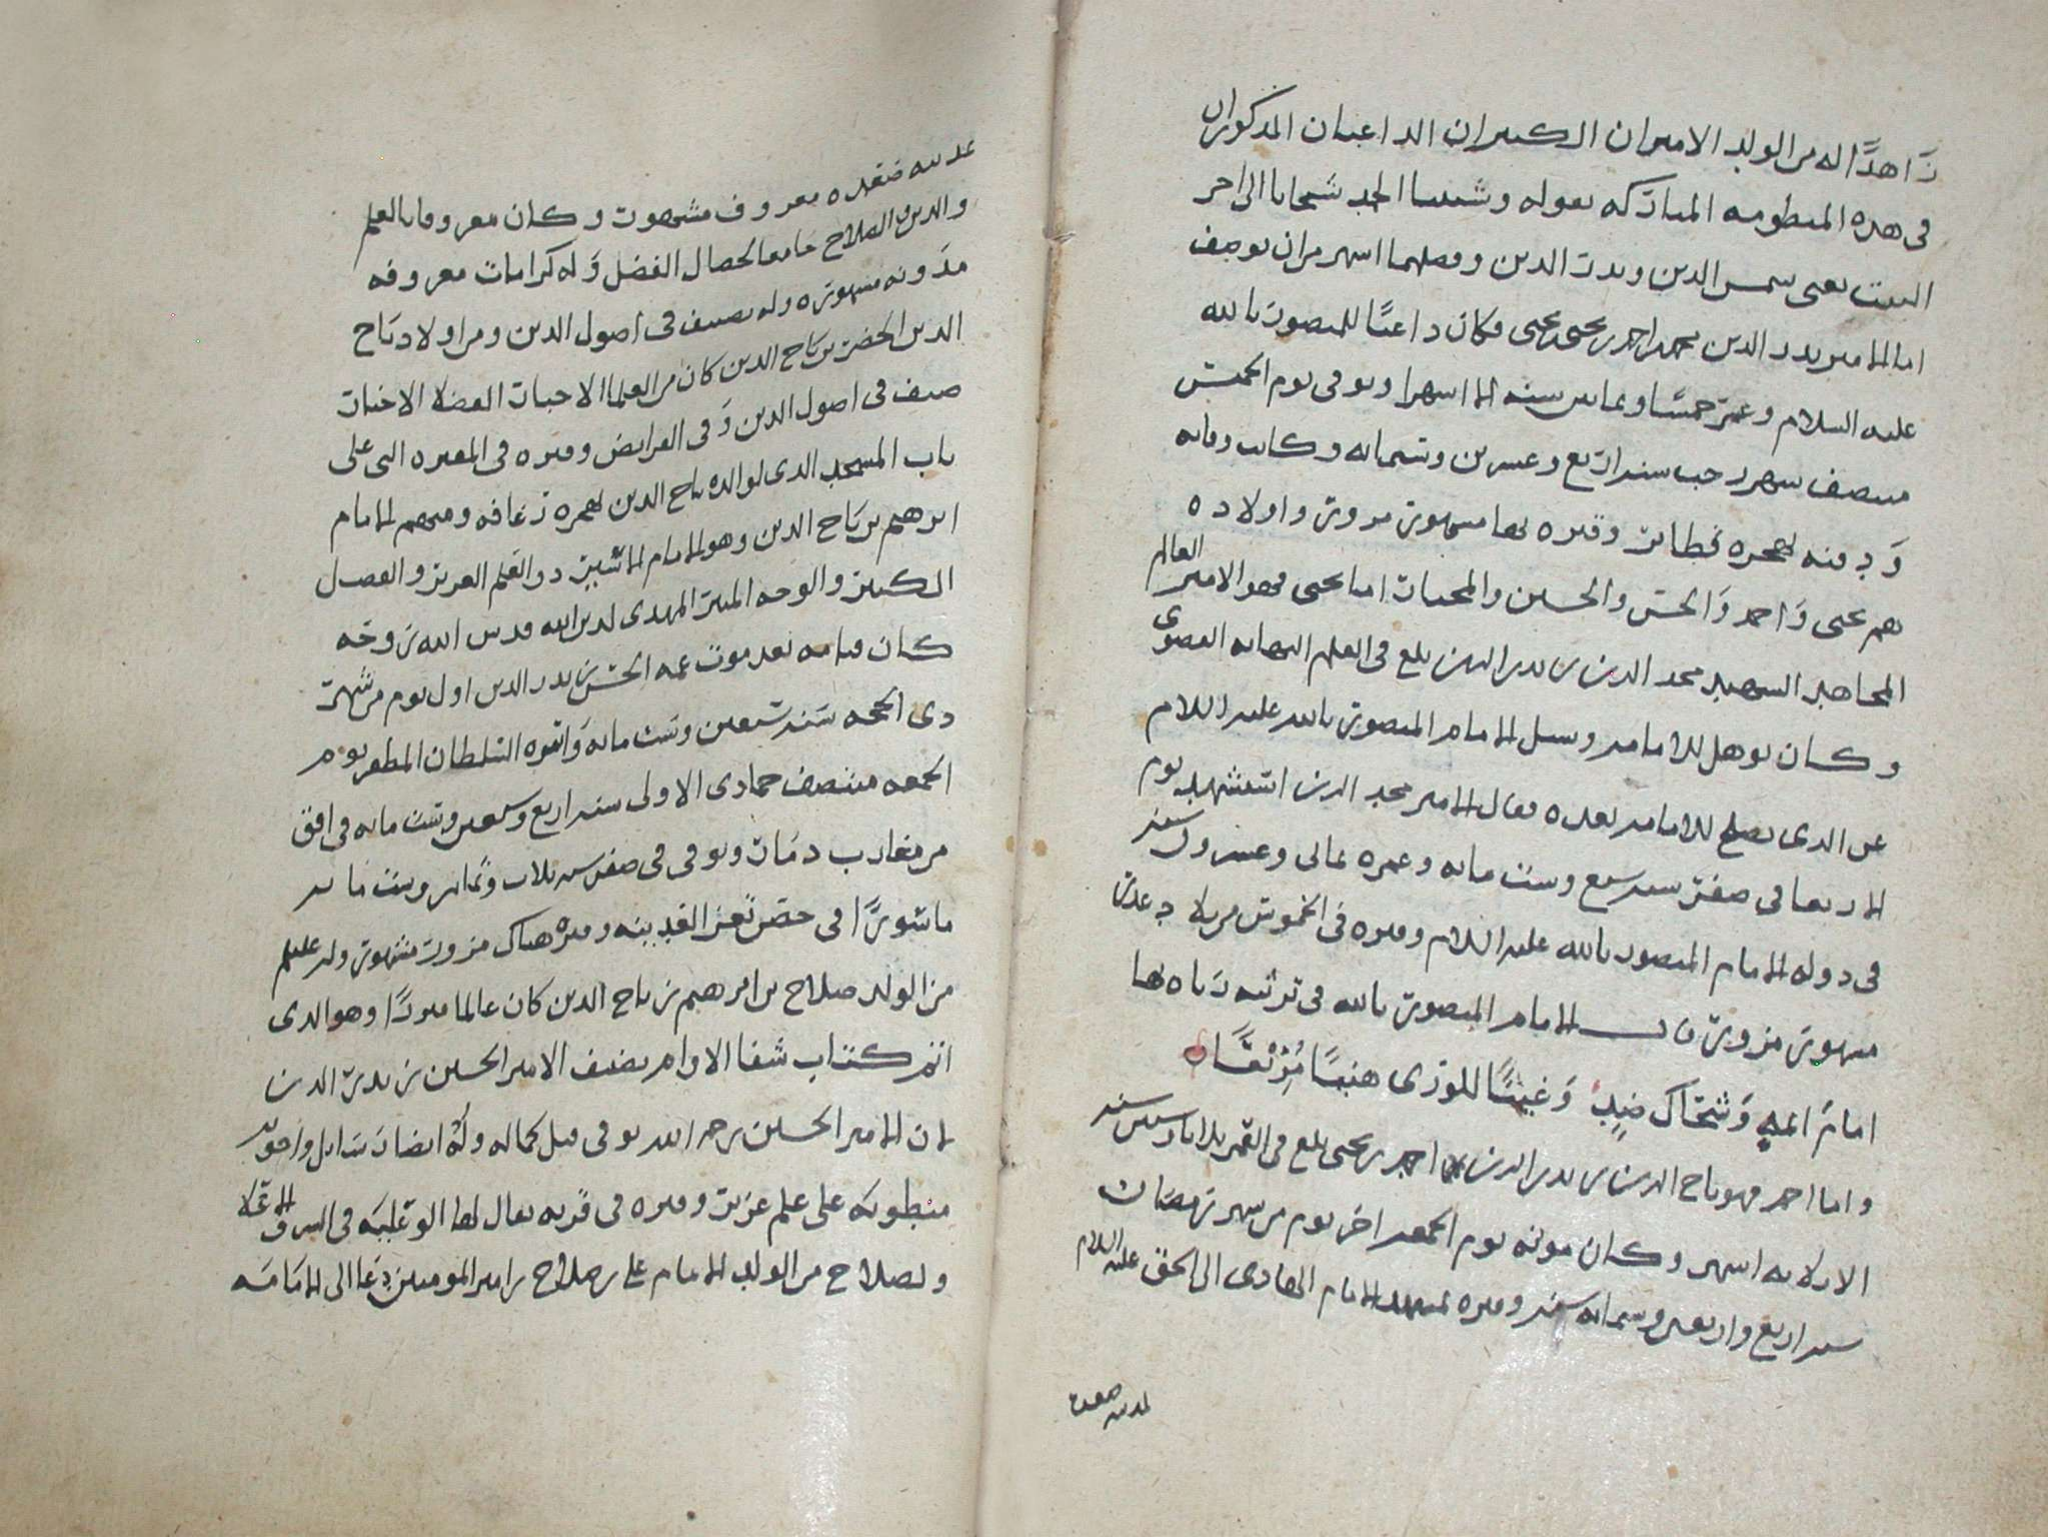 زاهدًا له من الولد الاميران الكبيران الداعيان المذكوران
في هذه المنظومه المباركه بقوله وشيبتا الحمد شمخانا الى اخر
البيت يعني شمس الدين وبدر الدين وفضلهما اشهر من ان يوصف
اما الامير بدر الدين محمد بن احمد بن يحيى بن يحيى فكان داعيًا للمنصور بالله
عليه السلام وعمر خمسًا وثمانين سنه الا اشهرا وتوفي يوم الخميس
منتصف شهر رجب سنه اربع وعشرين وستمائه وكانت وفاته
ودفنه بهجره قطابر وقبره بها مشهور مزور واولاده
هم يحيى واحمد والحسن والحسين والمختار اما يحيى فهو الامير العالم
المجاهد الشهيد مجد الدين بن بدر الدين بلغ في العلم النهايه القصوى
وكان يوهل للامامه وسئل الامام المنصور بالله عليه السلام
عن الذي يصلح للامامه بعده فقال الامير مجد الدين استشهد يوم
في صفر سنه سبع وست مائه وعمره ثماني وعشرون سنه
في دوله الامام المنصور بالله عليه السلام وقبره في الخموس من بلاد عذر
مشهور مزور قال الامام المنصور بالله في ترثيه رثاه بها
امام الهدى وشحّاك ضدٍ وغيثًا للورى هنيًا مُرْتَفَقًا
واما احمد فهو تاج الدين بن بدر الدين بن احمد بن يحيى بلغ في العمر ثلاثا وسبعين سنه
الا ثلاثه اشهر وكان موته يوم الجمعه اخر يوم من شهر رمضان
سنه اربع واربعين وستمائه سنه وقبره بمشهد الامام الهادي الى الحق عليه السلام
بمدينه صعده
بمدينه صعده معروف مشهور وكان معروفا بالعلم
والدين والصلاح جامعا لخصال الفضل وله كرامات معروفه
مدونه مشهوره وله تصنيف في اصول الدين ومن اولاد تاج
الدين الخضر بن تاج الدين كان من العلما الاحبار الفضلا الاخيار
صنف في اصول الدين وفي الفرايض وقبره في المقبره التي على
باب المسجد الذي لوالده تاج الدين بهجره رغافه ومنهم الامام
ابرهيم بن تاج الدين وهو الامام الاشهر ذو العلم الغزير والفضل
الكبير والوجه المنير المهدي لدين الله قدس الله روحه
كان قيامه بعد موت عمه الحسن بن بدر الدين اول يوم من شهر
ذي الحجه سنه سبعين وست مائه واسره السلطان المظفر يوم
الجمعه منتصف جمادى الاولى سنه اربع وسبعين وست مائه في افق
من مغارب ذمار وتوفي في صفر سنه ثلاث وثمانين وست مائه
ماسورًا في حصن تعز القديمه وقبره هناك مزور مشهور وله عليلم
من الولد صلاح بن ابرهيم بن تاج الدين كان عالما مبررًا وهو الذي
اتم كتاب شفا الاوام تصنيف الامير الحسين بن بدر الدين
لان الامير الحسين رحمه الله توفي قبل كماله وله ايضا رسايل واجوبه
منطويه على علم غزير وقبره في قريه يقال لها الوعليه في الشرف الاعلا
ولصلاح من الولد الامام علي بن صلاح بن امير المومنين دعا الى الامامه